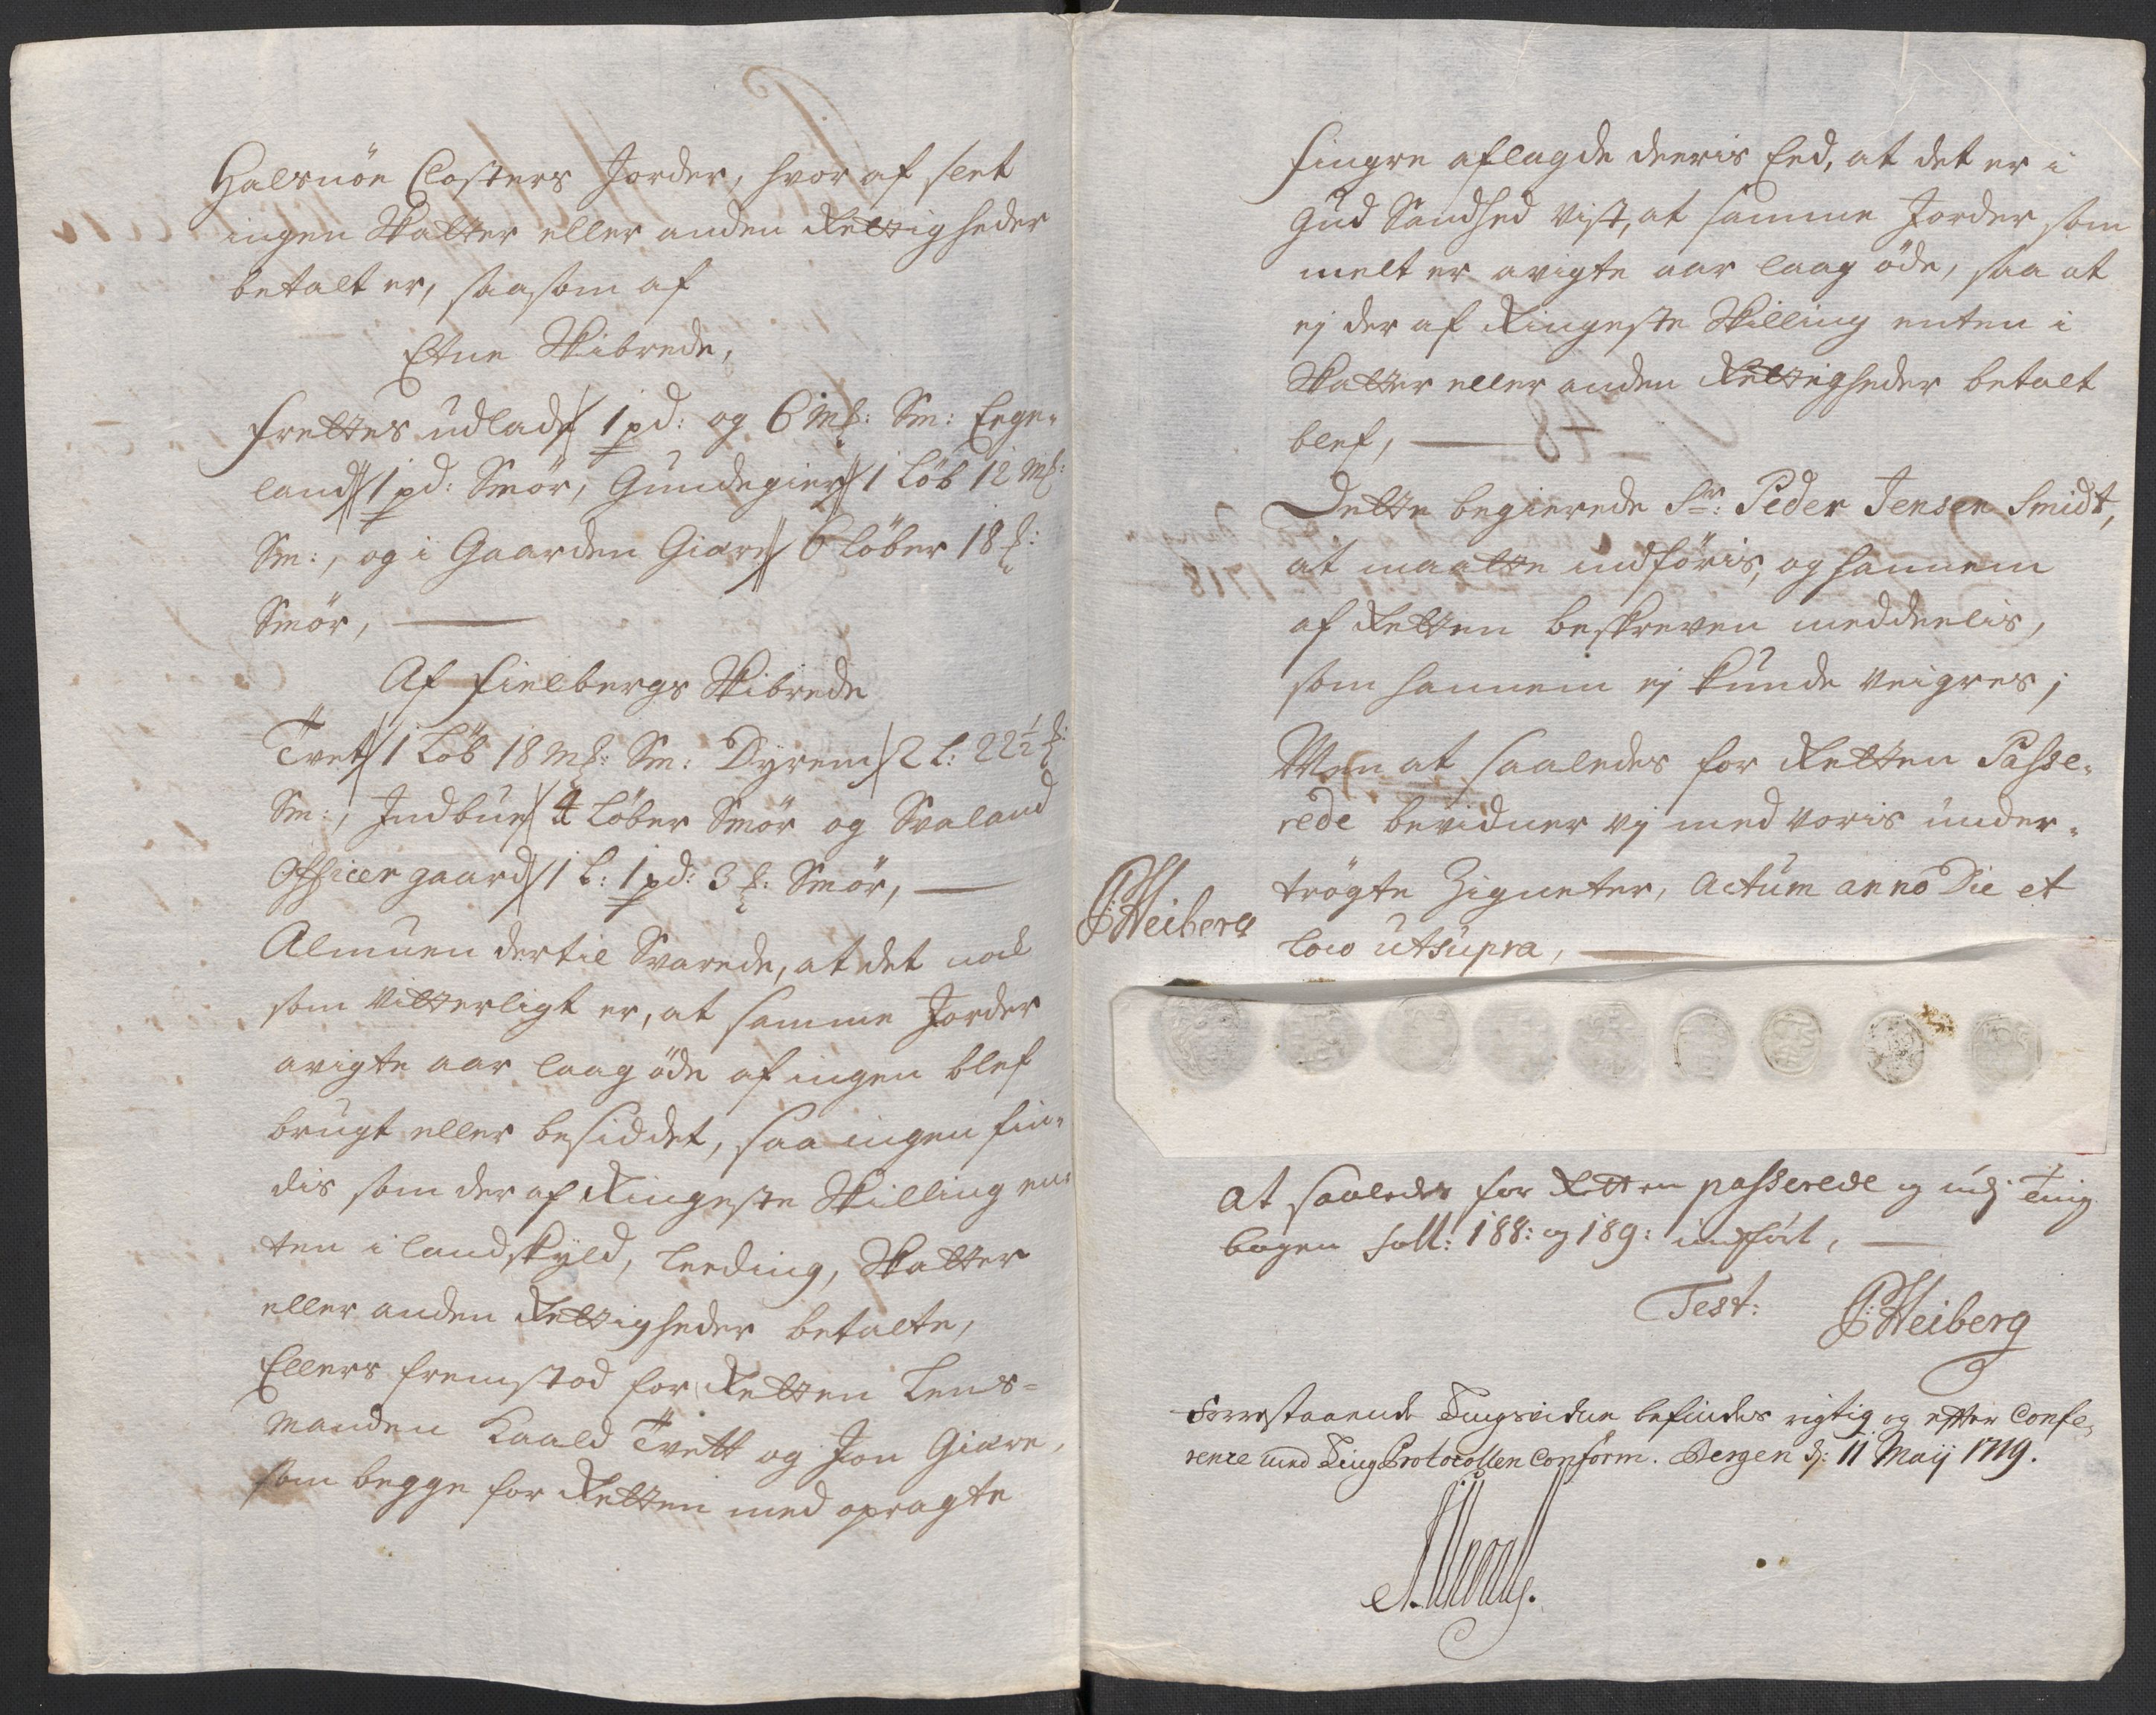 Halsnöe Closters Jorder, hvor af slet
ingen Skatter eller anden Rettigheder
betalt er, saasom af
Etne Skibrede,
Frettes udlad// 1 pd: og 6 mk: Sm: Ege-
land// 1 pd: Smör, Gundegier// 1 Löb 12 mk:
Sm:, og i Gaarden Giære// 6 Löber 18 k:
Smör,
Af Fielbergs Skibrede
Tvet// 1 Löb 18 mk: Sm: Dyrem/ 2 L: 22½ k:
Sm:, Indbue// 4 Löber Smör og Svaland
Officer gaard// 1 L: 1 pd: 3 k: Smör,
Almuen dertil Svarede, at det nok
som vitterligt er, at samme Jorder
avigte aar laag öde af ingen blef
brugt eller besiddet, saa ingen fin-
dis som der af Ringeste Skilling en-
ten i landskyld, Leeding, Skatter
eller anden Rettigheder betalte,
Ellers fremstod for Retten Lens-
manden Kaald Tvett og Jon Giære,
som begge for Retten med opragte
fingre aflagde deeris Eed, at det er i
Gud Sandhed vist, at samme Jorder som
melt er avigte aar laag öde, saa at
ej der af Ringeste Skilling enten i
Skatter eller anden Rettigheder betalt
blef,
Dette begierede Sr: Peder Jensen Smidt,
at maatte indföris, og hannem
af Retten beskreven meddeelis,
som hannem ej kunde veigres;
Men at saaledes for Retten Passe-
rede bevidner vj med voris under-
trögte Zigneter, Actum anno Die et
loco utsupra,
JHeiberg
At saaledes for Retten passerede og udj Ting
bogen foll: 188: og 189: indfört,
Test: JHeiberg
Forrestaaende Tingsvidne befindes rigtig og efter Confe-
rence med Ting Protocollen Conform. Bergen d: 11 Maij 1719.